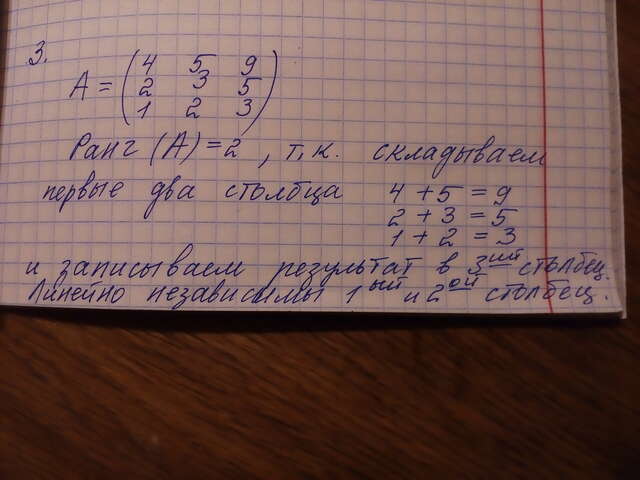 3.
A = ( 4 5 9
2 3 5
1 2 3 )
Ранг (A) = 2 , т.к. складываем
первые два столбца 4 + 5 = 9
2 + 3 = 5
1 + 2 = 3
и записываем результат в 3ий столбец.
Линейно независимы 1ый и 2ой столбец.